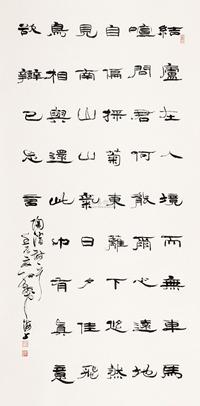 結廬在人境而無車馬
喧問君何能爾心遠地
自偏採菊東籬下悠然
見南山山氣日夕佳飛
鳥相與還此中有真意
欲辯已忘言
陶潛詩